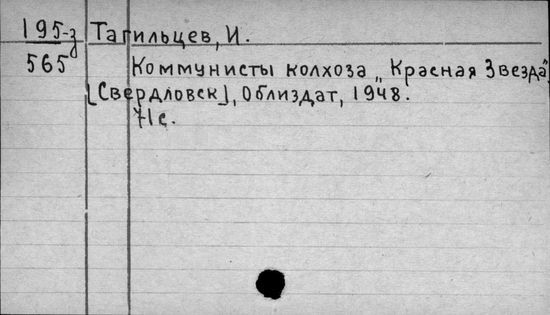 195-з Тагильцев, И.
565 Коммунисты колхоза „Красная Звезда",
[Свердловск], Облиздат, 1948.
71 с.